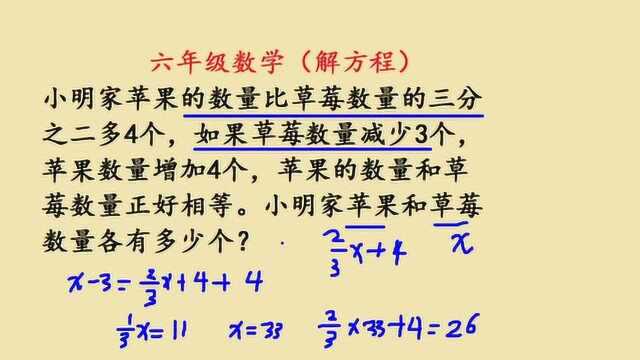 六年级数学（解方程）
小明家苹果的数量比草莓数量的三分
之二多4个，如果草莓数量减少3个，
苹果数量增加4个，苹果的数量和草
莓数量正好相等。小明家苹果和草莓
数量各有多少个？
2/3x+4 x
x-3=2/3x+4+4
1/3x=11 x=33 2/3×33+4=26